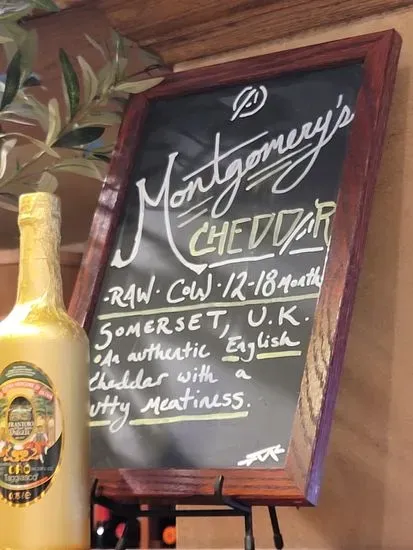 Montgomery's
CHEDDAR
·RAW· COW· 12-18 Month
SOMERSET, U.K.
•An authentic English
Cheddar with a
utty Meatiness.
FRANTOIO
ORO
Taggiasco
0,75 l e